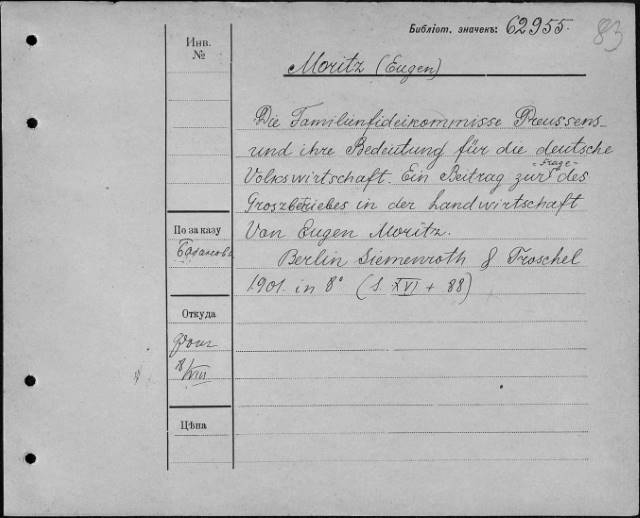 Библіот. значекъ: 62955.
83
Инв.
№
Moritz (Eugen)
Die Familienfideikommisse Preussens
und ihre Bedeutung für die deutsche
Volkswirtschaft. Ein Beitrag zur Frage des
Groszbetriebes in der Landwirtschaft
Von Eugen Moritz.
Berlin Siemenroth & Troschel
1901. in 8° (S. XVI + 88)
По заказу
Откуда
8/VIII
Цѣна